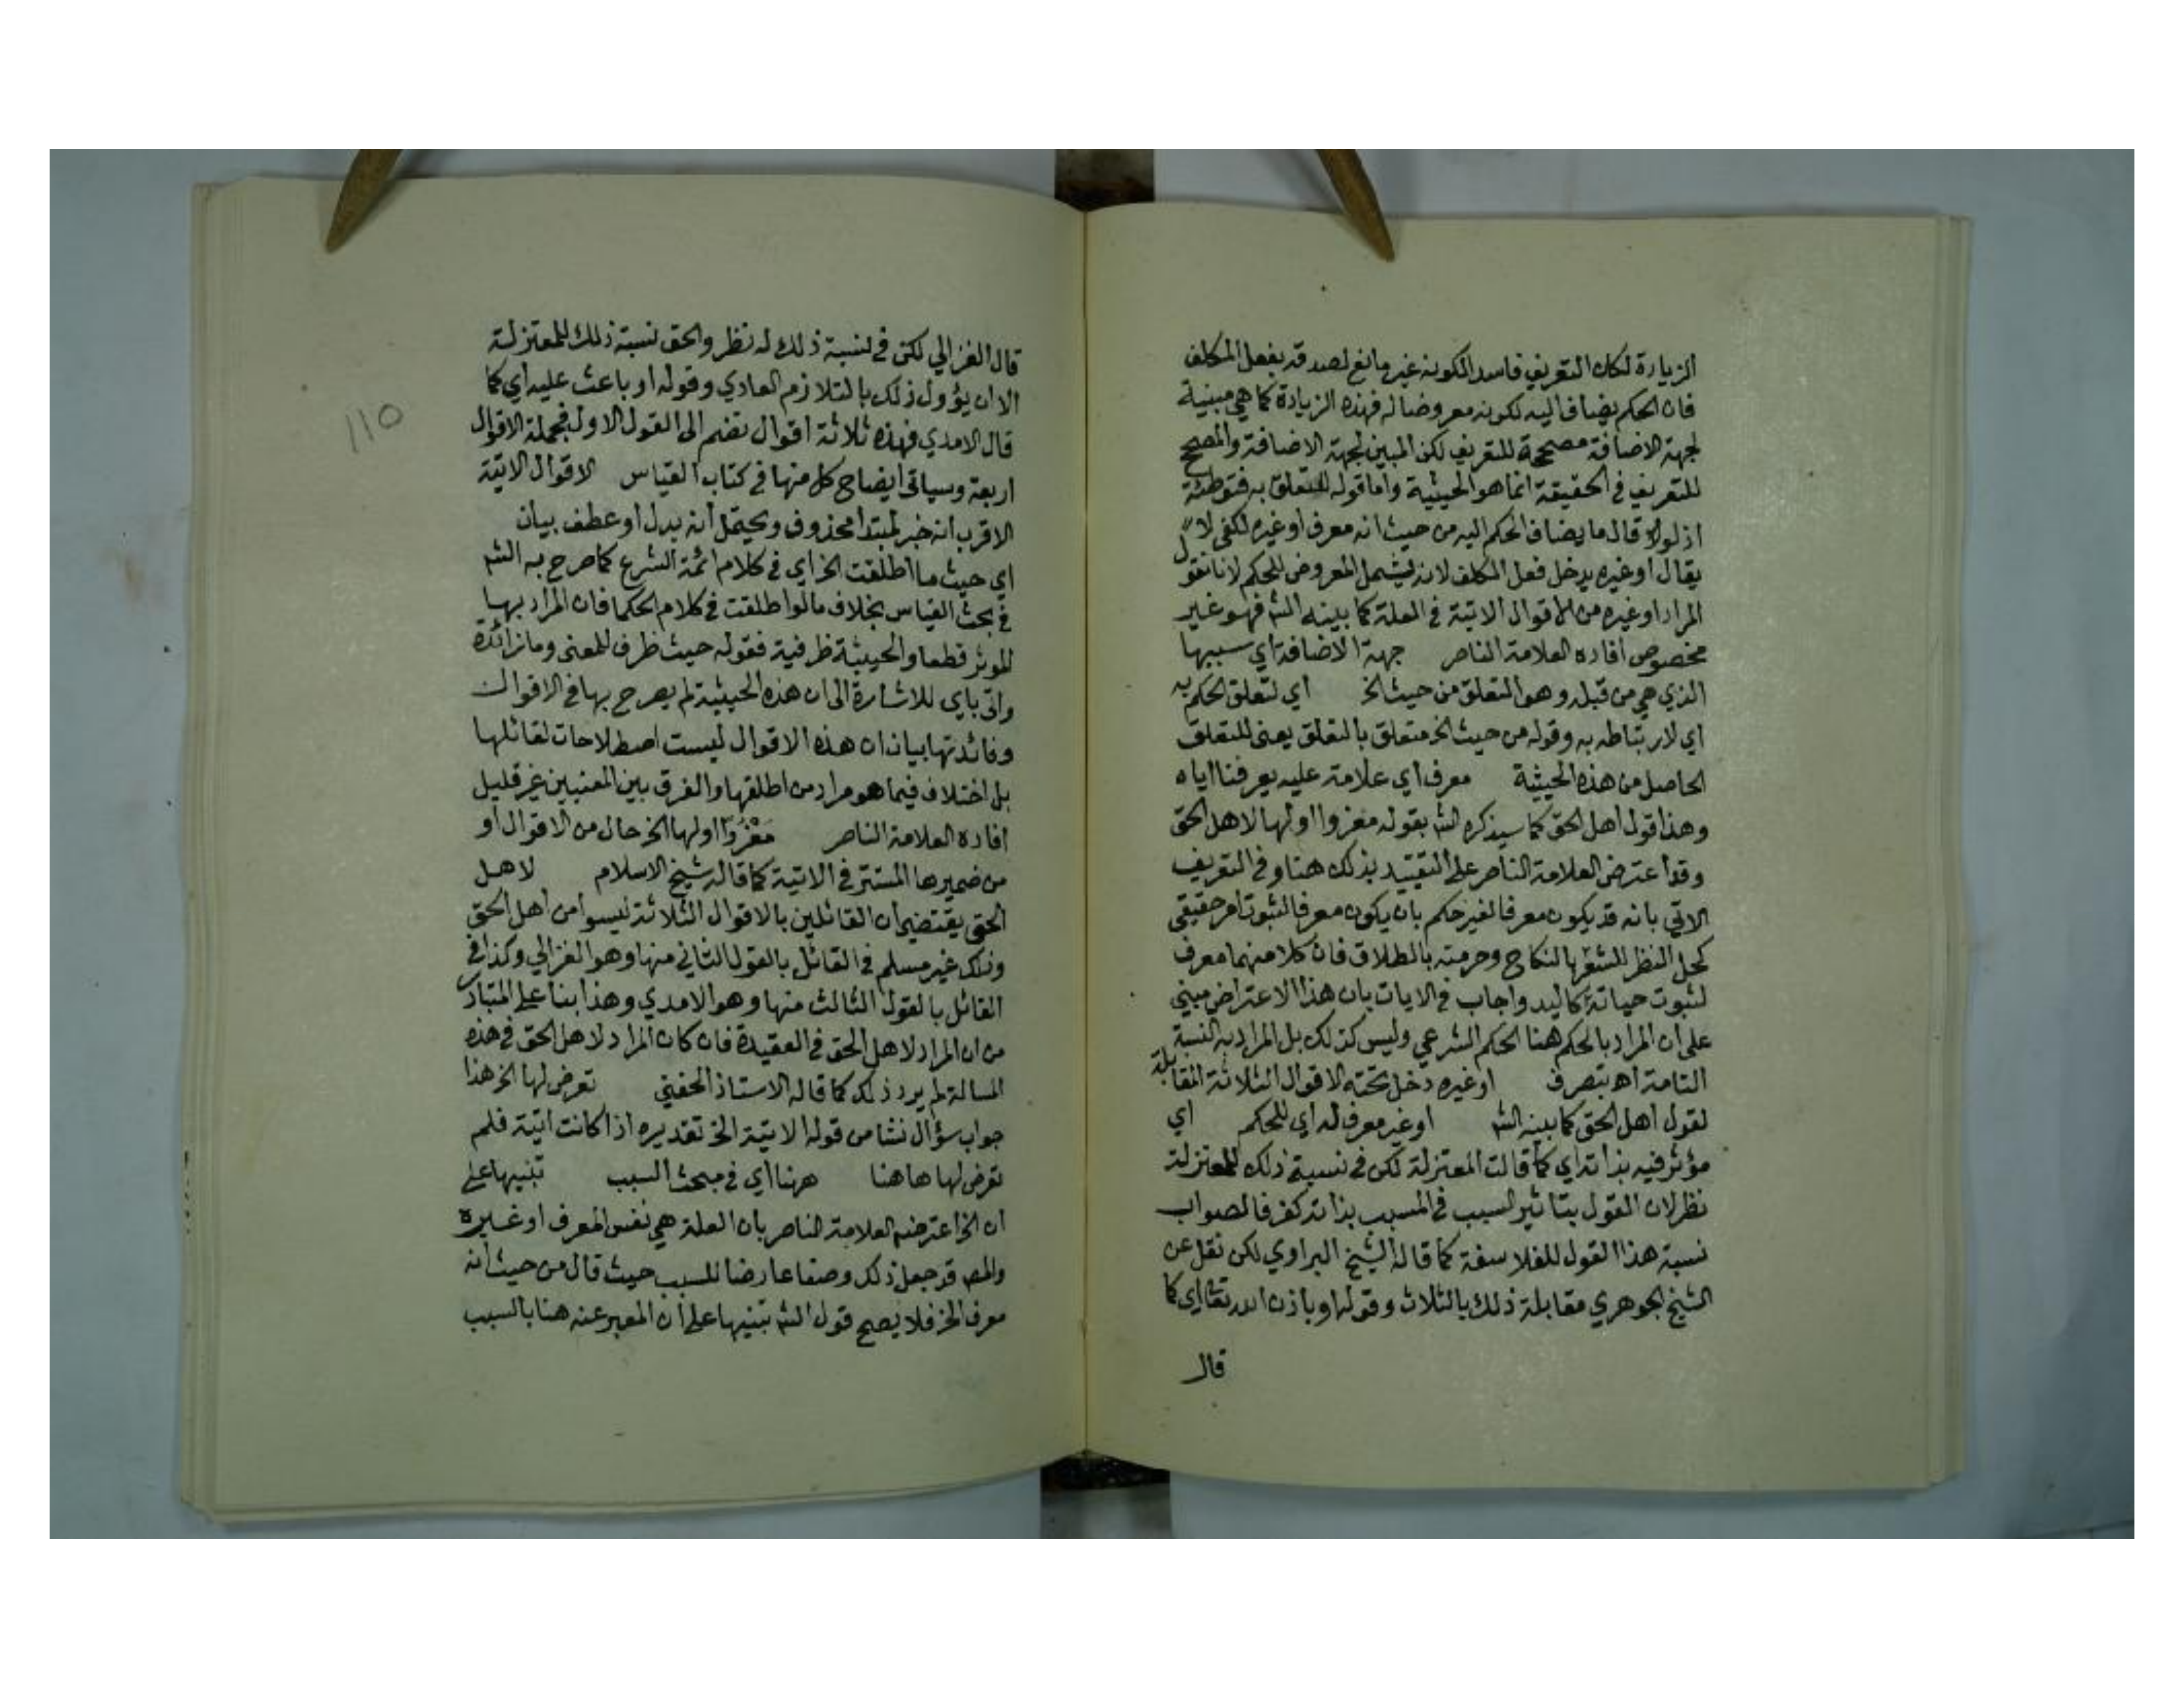 الزيارة لكان التعريف فاسد المكونه غير مانع لصدقه بفعل المكلف
فان الحكم يضاف اليه لكونه معروضا له فهذه الزيادة كما هي مبنية
لجهة الاضافة مصححة للتعريف لكن المبين لجهة الاضافة والمصحح
للتعريف في الحقيقة انما هو الحيثية واما قوله للتعلق به فتوطئة
اذ لولا قال ما يضاف الحكم اليه من حيث انه معرف او غيره لكفى لا
يقال او غيره يدخل فعل المكلف لانه يشمل المعروض للحكم لانا نقول
المراد او غيره من الاقوال الاتية في العلة كما بينه الش فهو غير
مخصوص افاده العلامة الناصر جهة الاضافة اي سببها
الذي هي من قبله وهو التعلق من حيث الخ اي لتعلق الحكم به
اي لارتباطه به وقوله من حيث الخ متعلق بالتعلق يعنى للتعلق
الحاصل من هذه الحيثية معرف اي علامة عليه يعرفنا اياه
وهذا قول اهل الحق كما سيذكره الش بقوله معزوا اولها لاهل الحق
وقد اعترض العلامة الناصر على التقييد بذلك هنا وفي التعريف
الاتي بانه قد يكون معرفا لغير حكم بان يكون معرفا لثبوت امر حقيقي
كحل النظر للشعر بالنكاح وحرمته بالطلاق فان كلا منهما معرف
لثبوت حياته كاليد واجاب في الايات بان هذا الاعتراض مبني
على ان المراد بالحكم هنا الحكم الشرعي وليس كذلك بل المراد به النسبة
التامة اه بتصرف او غيره دخل تحته الاقوال الثلاثة المقابلة
لقول اهل الحق كما بينه الش او غير معرف له اي للحكم اي
مؤثر فيه بذاته اي كما قالت المعتزلة لكن في نسبة ذلك للمعتزلة
نظر لان القول بتاثير السبب في المسبب بذاته كفر فالصواب
نسبة هذا القول للفلاسفة كما قاله الشيخ البراوي لكن نقل عن
الشيخ الجوهري مقابلة ذلك بالثلاث وقوله او باذن الله تعالى اي كما
قال
١١٥
قال الغزالي لكن في نسبة ذلك له نظر والحق نسبة ذلك للمعتزلة
الا ان يؤول ذلك بالتلازم العادي وقوله او باعث عليه اي كما
قال الامدي فهذه ثلاثة اقوال تضم الى القول الاول فجملة الاقوال
اربعة وسياتي ايضاح كل منها في كتاب القياس الاقوال الاتية
الاقرب انه خبر لمبتدا محذوف ويحتمل انه بدل او عطف بيان
اي حيث ما اطلقت الخ اي في كلام ائمة الشرع كما صرح به الش
في بحث القياس بخلاف ما لو اطلقت في كلام الحكما فان المراد بها
الموثر قطعا والحيثية ظرفية فقوله حيث ظرف للمعنى وما زائدة
واتى باي للاشارة الى ان هذه الحيثية لم يصرح بها في الاقوال
وفائدتها بيان ان هذه الاقوال ليست اصطلاحات لقائلها
بل اختلاف فيما هو مراد من اطلقها والفرق بين المعنيين غير قليل
افاده العلامة الناصر مَعْزُوًّا اولها الخ حال من الاقوال او
من ضميرها المستتر في الاتية كما قاله شيخ الاسلام لاهل
الحق يقتضي ان القائلين بالاقوال الثلاثة ليسوا من اهل الحق
وذلك غير مسلم في القائل بالقول الثاني منها وهو الغزالي وكذا في
القائل بالقول الثالث منها وهو الامدي وهذا بنا على المتبادر
من ان المراد لاهل الحق في العقيدة فان كان المراد لاهل الحق في هذه
المسالة لم يرد ذلك كما قاله الاستاذ الحفني تعرض لها الخ هذا
جواب سؤال نشا من قوله الاتية الخ تقديره اذا كانت اتية فلم
تعرض لها هاهنا هنا اي في مبحث السبب تنبيها على
ان الخ اعترضه العلامة الناصر بان العلة هي نفس المعرف او غيره
والمص قد جعل ذلك وصفا عارضا للسبب حيث قال من حيث انه
معرف الخ فلا يصح قول الش تنبيها على ان المعبر عنه هنا بالسبب